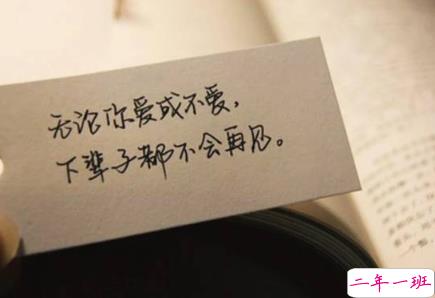 无论你爱或不爱，
下辈子都不会再见。
二年一班